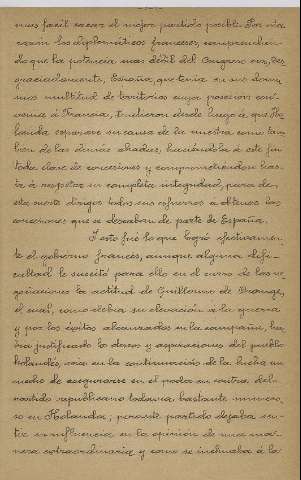 mas fácil sacar el mejor partido posible. Por esta
razón los diplomáticos franceses, comprendien-
do que la potencia mas débil del Congreso era, des-
graciadamente, España, que tenía en sus domi-
nios multitud de territorios cuya posesión con-
venía á Francia, tendieron desde luego á que Ho-
landa separase su causa de la nuestra como tam-
bien de las demás aliadas, haciéndola á este fin
toda clase de concesiones y comprometiéndose has-
ta á respetar su completa integridad, para de
esta suerte dirigir todos sus esfuerzos á obtener las
concesiones que se deseaban de parte de España.
Y esto fué lo que logró efectivamen-
te el gobierno francés, aunque alguna difi-
cultad le suscitó para ello en el curso de las ne-
gociaciones la actitud de Guillermo de Orange,
el cual, como debia su elevación á la guerra
y por los éxitos alcanzados en la campaña, ha-
bia justificado los deseos y aspiraciones del pueblo
holandés, veía en la continuación de la lucha un
medio de asegurarse en el poder en contra del
partido republicano todavia bastante numero-
so en Holanda; pero este partido dejaba sen-
tir su influencia en la opinión de una ma-
nera extraordinaria y como se inclinaba á la